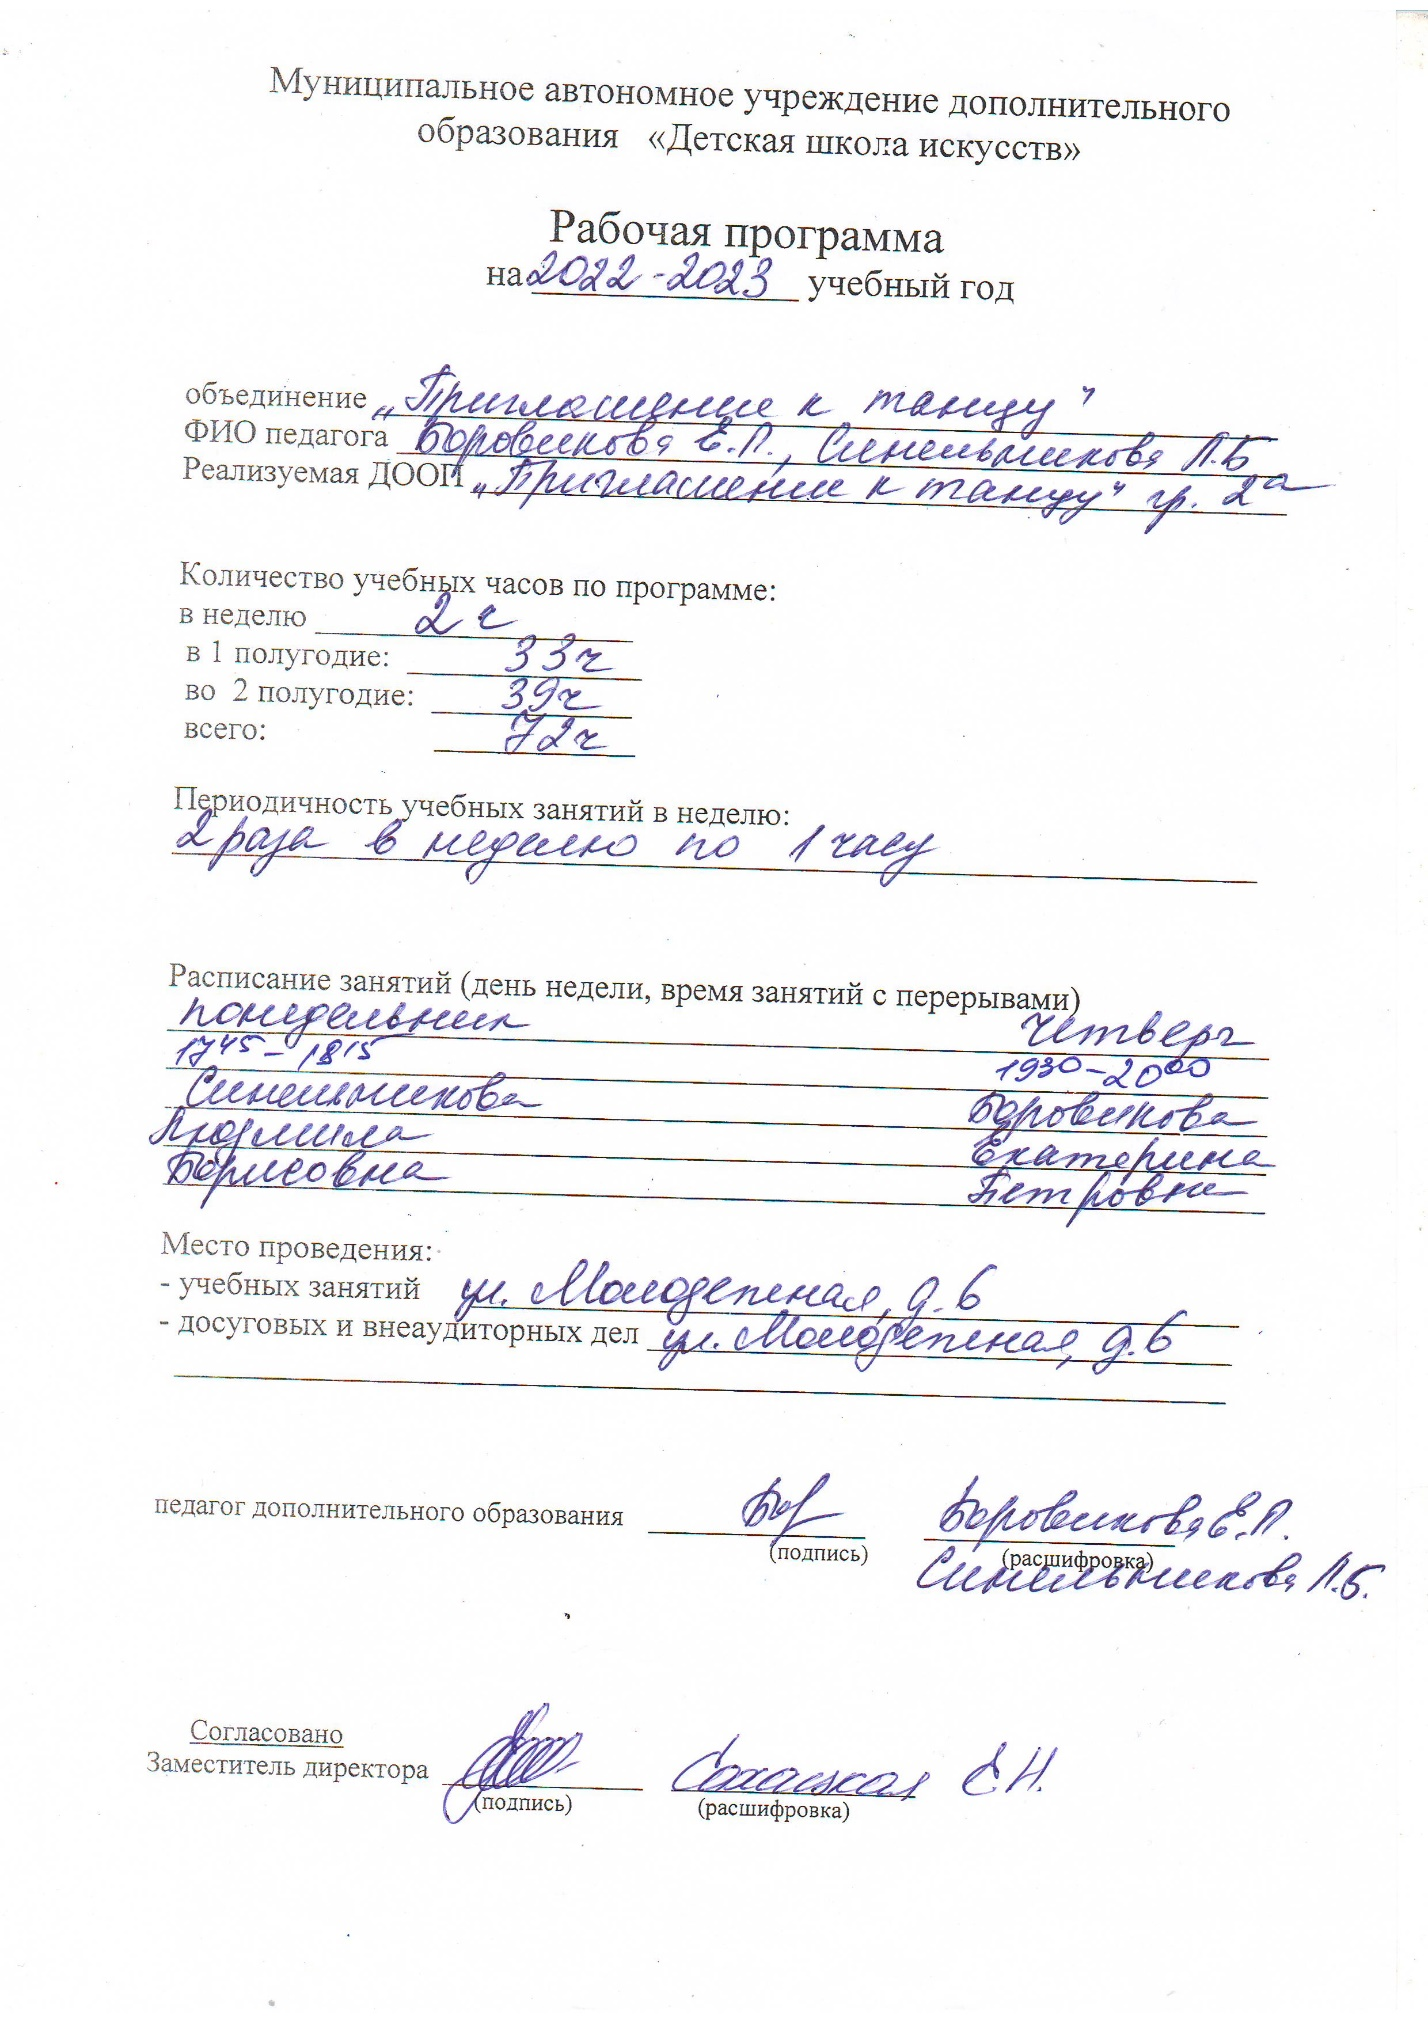 Муниципальное автономное учреждение дополнительного
образования «Детская школа искусств»
Рабочая программа
на 2022-2023 учебный год
объединение „Приглашение к танцу"
ФИО педагога Боровикова Е.П., Синельникова Л.Б
Реализуемая ДООП „Приглашение к танцу" гр. 2а
Количество учебных часов по программе:
в неделю 2 ч
в 1 полугодие: 33ч
во 2 полугодие: 39ч
всего: 72ч
Периодичность учебных занятий в неделю:
2 раза в неделю по 1 часу
Расписание занятий (день недели, время занятий с перерывами)
понедельник четверг
17⁴⁵-18¹⁵ 19³⁰-20⁰⁰
Синельникова Боровикова
Людмила Екатерина
Борисовна Петровна
Место проведения:
- учебных занятий ул. Молодежная, д.6
- досуговых и внеаудиторных дел ул. Молодежная, д.6
педагог дополнительного образования Боровикова Е.П.
(подпись) (расшифровка)
Синельникова Л.Б.
Согласовано
Заместитель директора Сохацкая Е Н.
(подпись) (расшифровка)